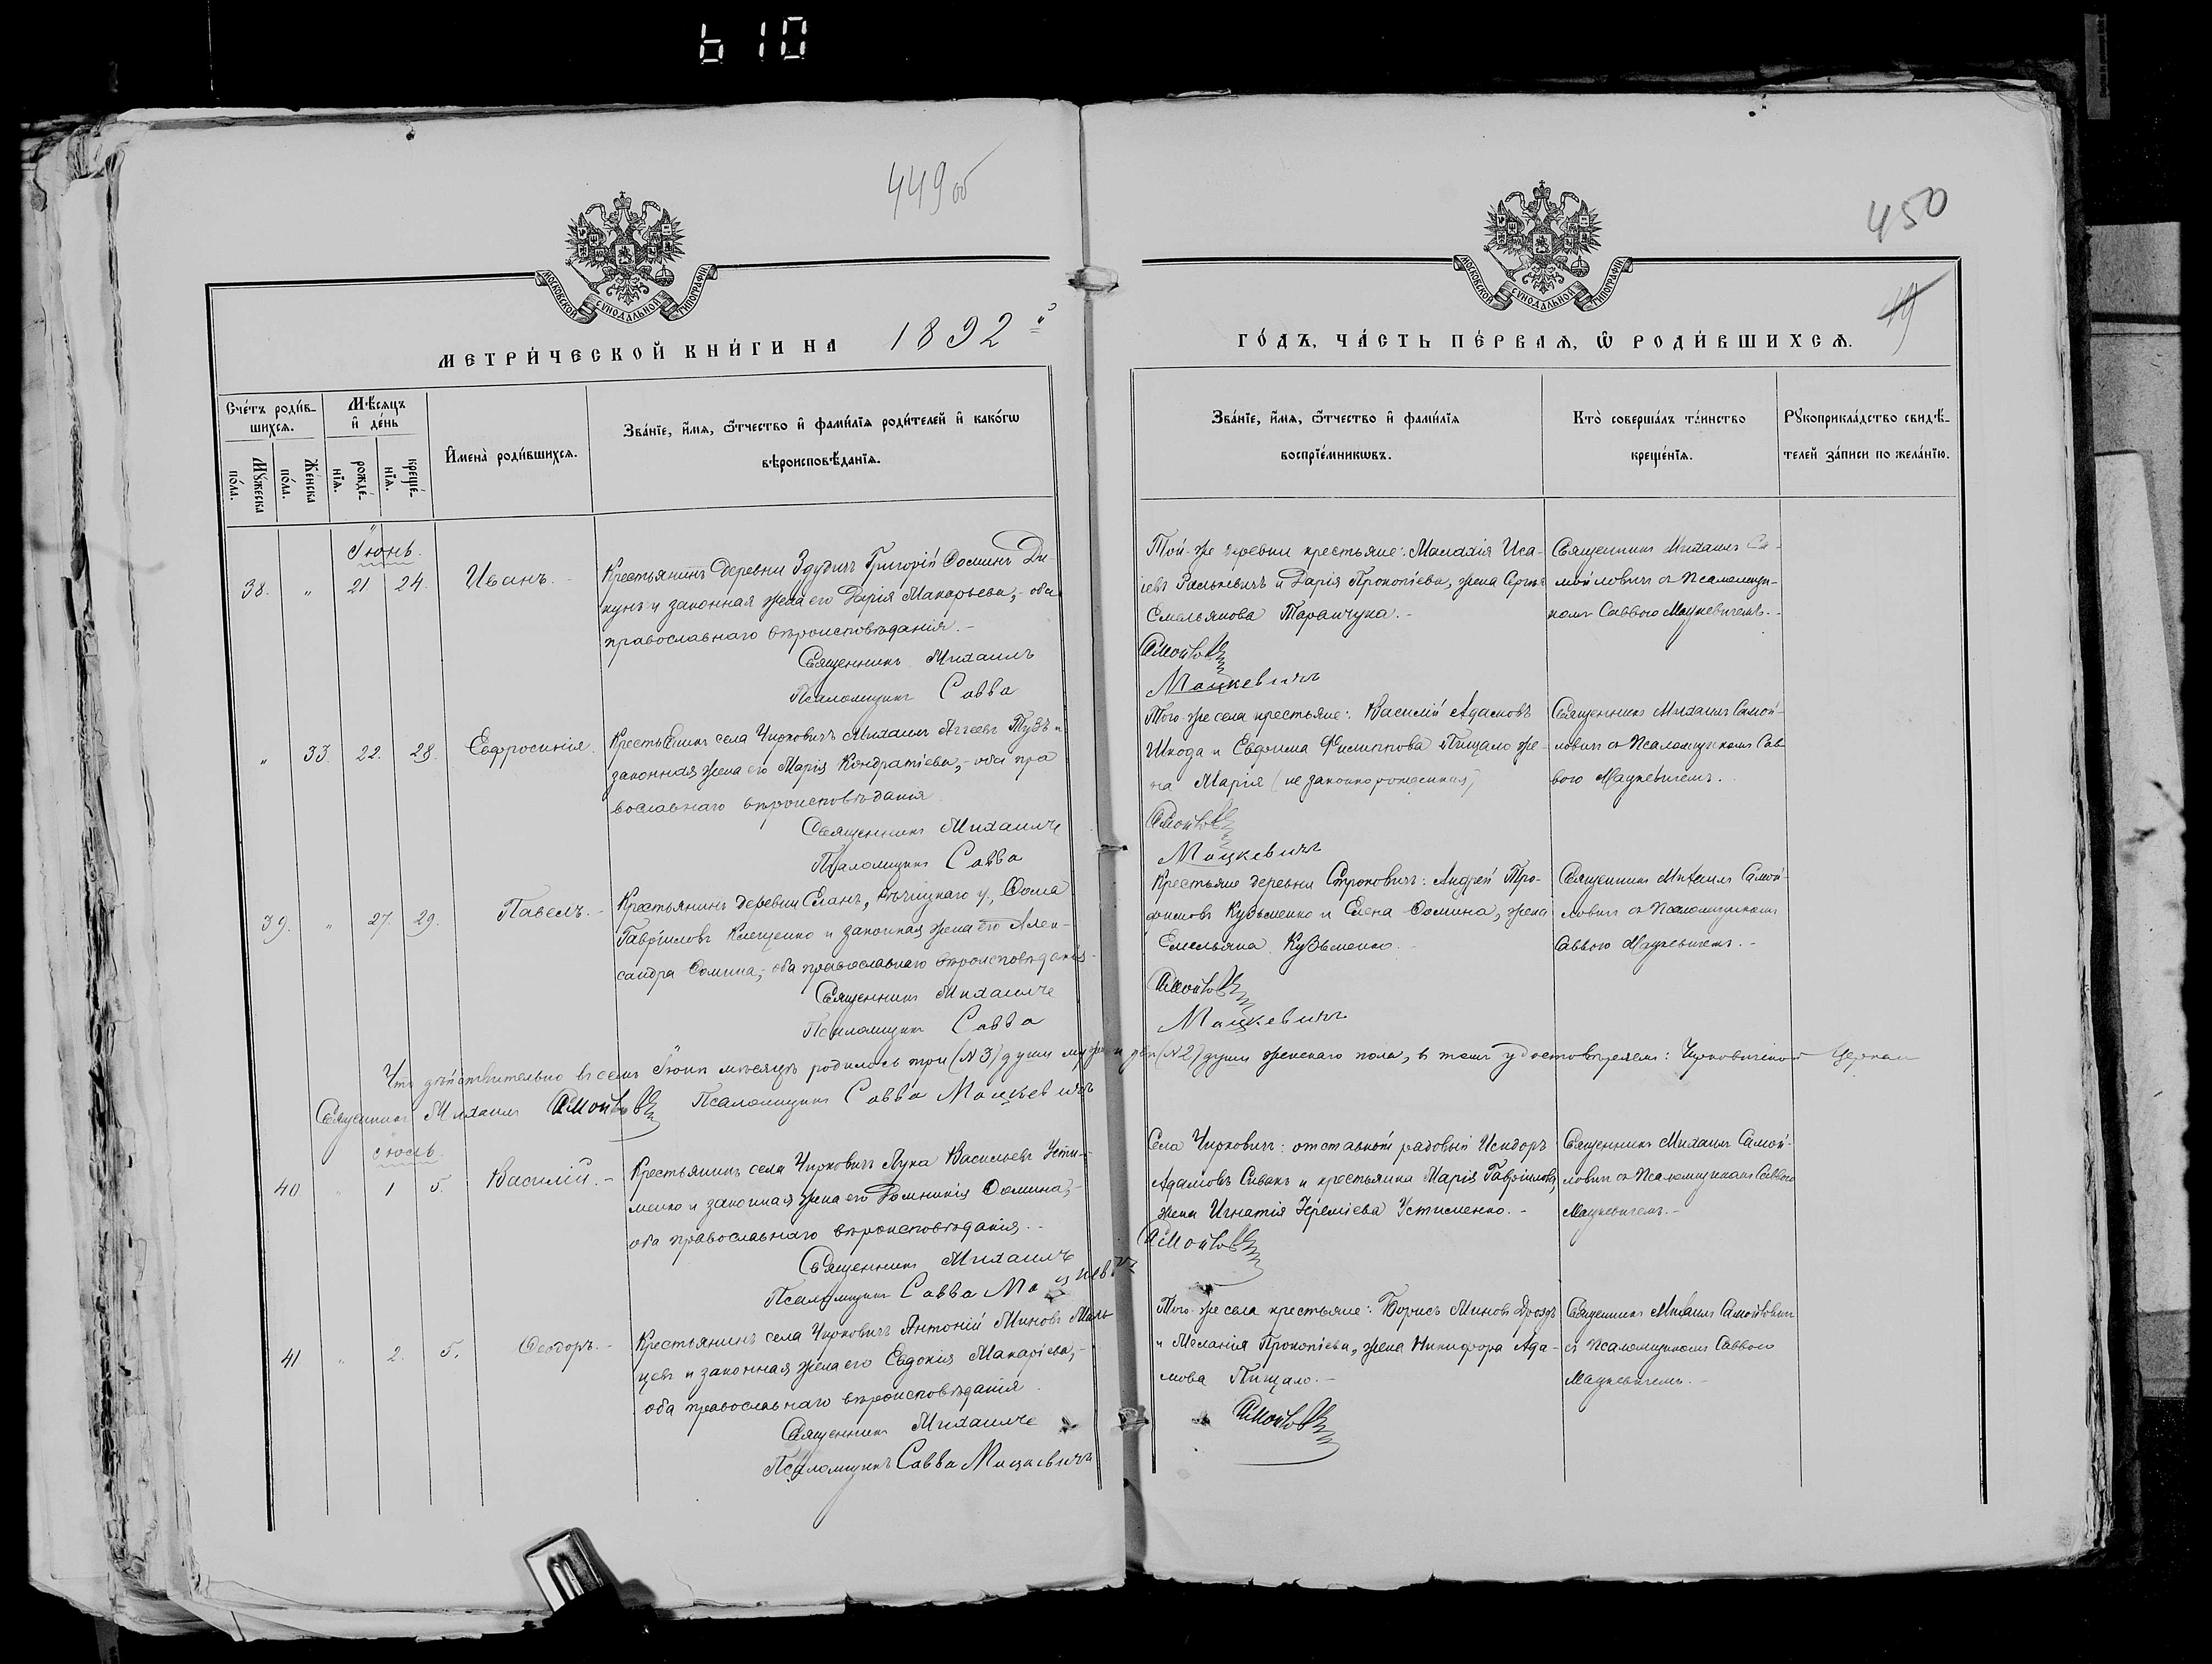 610
449 об
450
19
МОСКОВСКОЙ СѴНОДАЛЬНОЙ ТИПОГРАФІИ
МОСКОВСКОЙ СѴНОДАЛЬНОЙ ТИПОГРАФІИ
МЕТРИ́ЧЕСКОЙ КНИ́ГИ НА 1892 й
ГО́ДЪ, ЧА́СТЬ ПЕ́РВАѦ, Ѿ РОДИ́ВШИХСѦ.
Сче́тъ роди́в-
шихсѧ.
Мѣ́сѧцъ
и҆ де́нь
Мꙋ́жеска
по́ла.
Же́нска
по́ла.
рожде́-
нїѧ.
креще́-
нїѧ.
И҆мена̀ роди́вшихсѧ.
Зва́нїе, и҆́мѧ, ѻ҆́тчество и҆ фами́лїѧ роди́телей и҆ како́гѡ
вѣроисповѣ́данїѧ.
Зва́нїе, и҆́мѧ, ѻ҆́тчество и҆ фами́лїѧ
воспрїе́мникѡвъ.
Кто̀ соверша́лъ та́инство
креще́нїѧ.
Рꙋкоприкла́дство свидѣ́-
телей за́писи по жела́нїю.
Іюнь.
38. " 21 24. Иванъ. -
Крестьянинъ деревни Григорій Ѳоминъ Ди-
кунъ и законная жена его Дарія Макарьева, - оба
православнаго вѣроисповѣданія. -
Священникъ Михаилъ
Псаломщикъ Савва
Той-же деревни крестьяне: Малахія Иса-
іевъ и Дарія Прокопіева, жена Сергѣя
Емельянова Таранчука. -
Самойловичъ
Мацкевичъ
Священникъ Михаилъ Са-
мойловичъ съ Псаломщи-
комъ Саввою Мацкевичемъ. -
" 33 22. 28. Евфросинія.
Крестьянинъ села Чирковичъ Михаилъ Аггеевъ Тузъ и
законная жена его Марія Кондратіева, - оба пра
вославнаго вѣроисповѣданія
Священникъ Михаилъ
Псаломщикъ Савва
Того-же села крестьяне: Василій Адамовъ
Шкода и Евфима Филиппова Пищало же-
на Марія (незаконнорожденная)
Самойловичъ
Мацкевичъ
Священникъ Михаилъ Самой-
ловичъ съ Псаломщикомъ Сав
вою Мацкевичемъ.
39. " 27. 29. Павелъ. -
Крестьянинъ деревни Еланъ, Рѣчицкаго у., Ѳома
Гавріиловъ Клещенко и законная жена его Алек-
сандра Ѳомина, - оба православнаго вѣроисповѣданія -
Священникъ Михаилъ
Псаломщикъ Савва
Крестьяне деревни Страковичъ: Андрей Тро-
фимовъ Кузьменко и Елена Ѳомина, жена
Емельяна Кузьменко. -
Самойловичъ
Мацкевичъ
Священникъ Михаилъ Самой-
ловичъ съ Псаломщикомъ
Саввою Мацкевичемъ. -
Что дѣйствительно въ семъ Іюнѣ мѣсяцѣ родилось три (№ 3) души муж. и двѣ (№ 2) души женскаго пола, въ томъ удостовѣряемъ: Чирковичской Церкви
Священникъ Михаилъ Самойловичъ Псаломщикъ Савва Мацкевичъ
Іюль.
40 " 1 5. Василій. -
Крестьянинъ села Чирковичъ Лука Васильевъ Усти-
менко и законная жена его Домникія Ѳомина, -
оба православнаго вѣроисповѣданія. -
Священникъ Михаилъ
Псаломщикъ Савва Мацкевичъ
Села Чирковичъ: отставной рядовый Исидоръ
Адамовъ Сивакъ и крестьянка Марія Гавріилова,
жена Игнатія Іереміева Устименко. -
Самойловичъ
Священникъ Михаилъ Самой-
ловичъ съ Псаломщикомъ Саввою
Мацкевичемъ. -
41 " 2. 5. Ѳеодоръ. -
Крестьянинъ села Чирковичъ Антоній Миновъ Маль
цевъ и законная жена его Евдокія Макаріева, -
оба православнаго вѣроисповѣданія.
Священникъ Михаилъ
Псаломщикъ Савва Мацкевичъ
Того-же села крестьяне: Борисъ Миновъ Дроздъ
и Меланія Прокопіева, жена Никифора Ада-
мова Пищало. -
Самойловичъ
Священникъ Михаилъ Самойловичъ
съ Псаломщикомъ Саввою
Мацкевичемъ. -